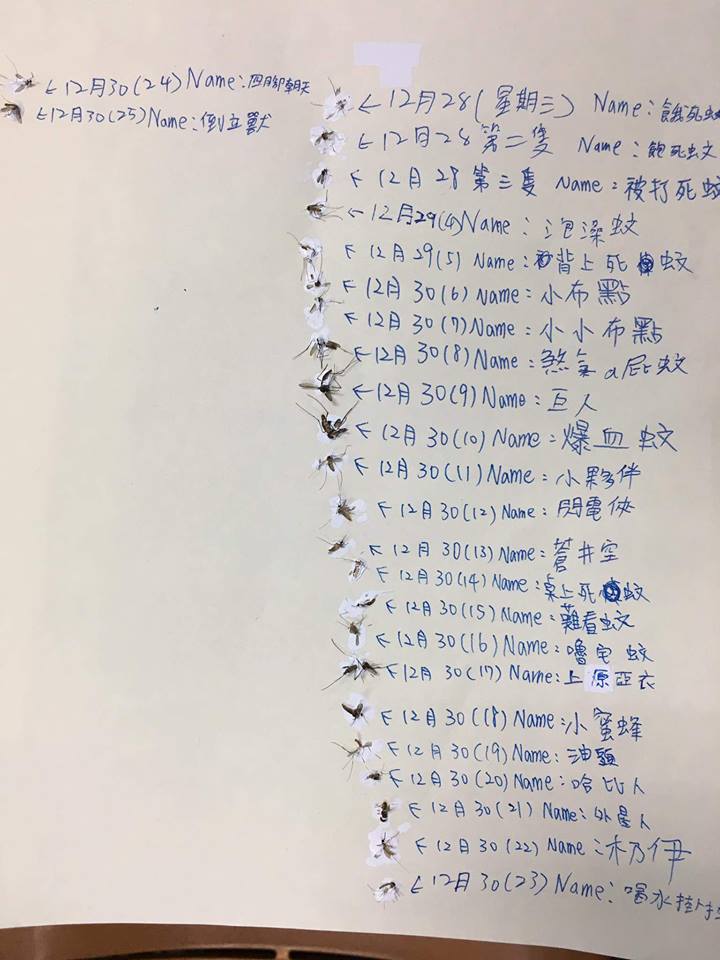 ←12月30(24)Name:四腳朝天
←12月30(25)Name:倒立獸
←12月28(星期三) Name:餓死蚊
←12月28 第二隻 Name:飽死蚊
←12月28 第三隻 Name:被打死蚊
←12月29(4)Name:泡澡蚊
←12月29(5) Name:背上死蚊
←12月30(6)Name:小布點
←12月30(7)Name:小小布點
←12月30(8)Name:煞氣a屁蚊
←12月30(9)Name:巨人
←12月30(10)Name:爆血蚊
←12月30(11)Name:小夥伴
←12月30(12)Name:閃電俠
←12月30(13)Name:蒼井空
←12月30(14)Name:桌上死蚊
←12月30(15)Name:難看蚊
←12月30(16)Name:嚕宅蚊
←12月30(17)Name:上原亞衣
←12月30(18)Name:小蜜蜂
←12月30(19)Name:油頭
←12月30(20)Name:哈比人
←12月30(21) Name:外星人
←12月30(22) Name:木乃伊
←12月30(23) Name:喝水掛